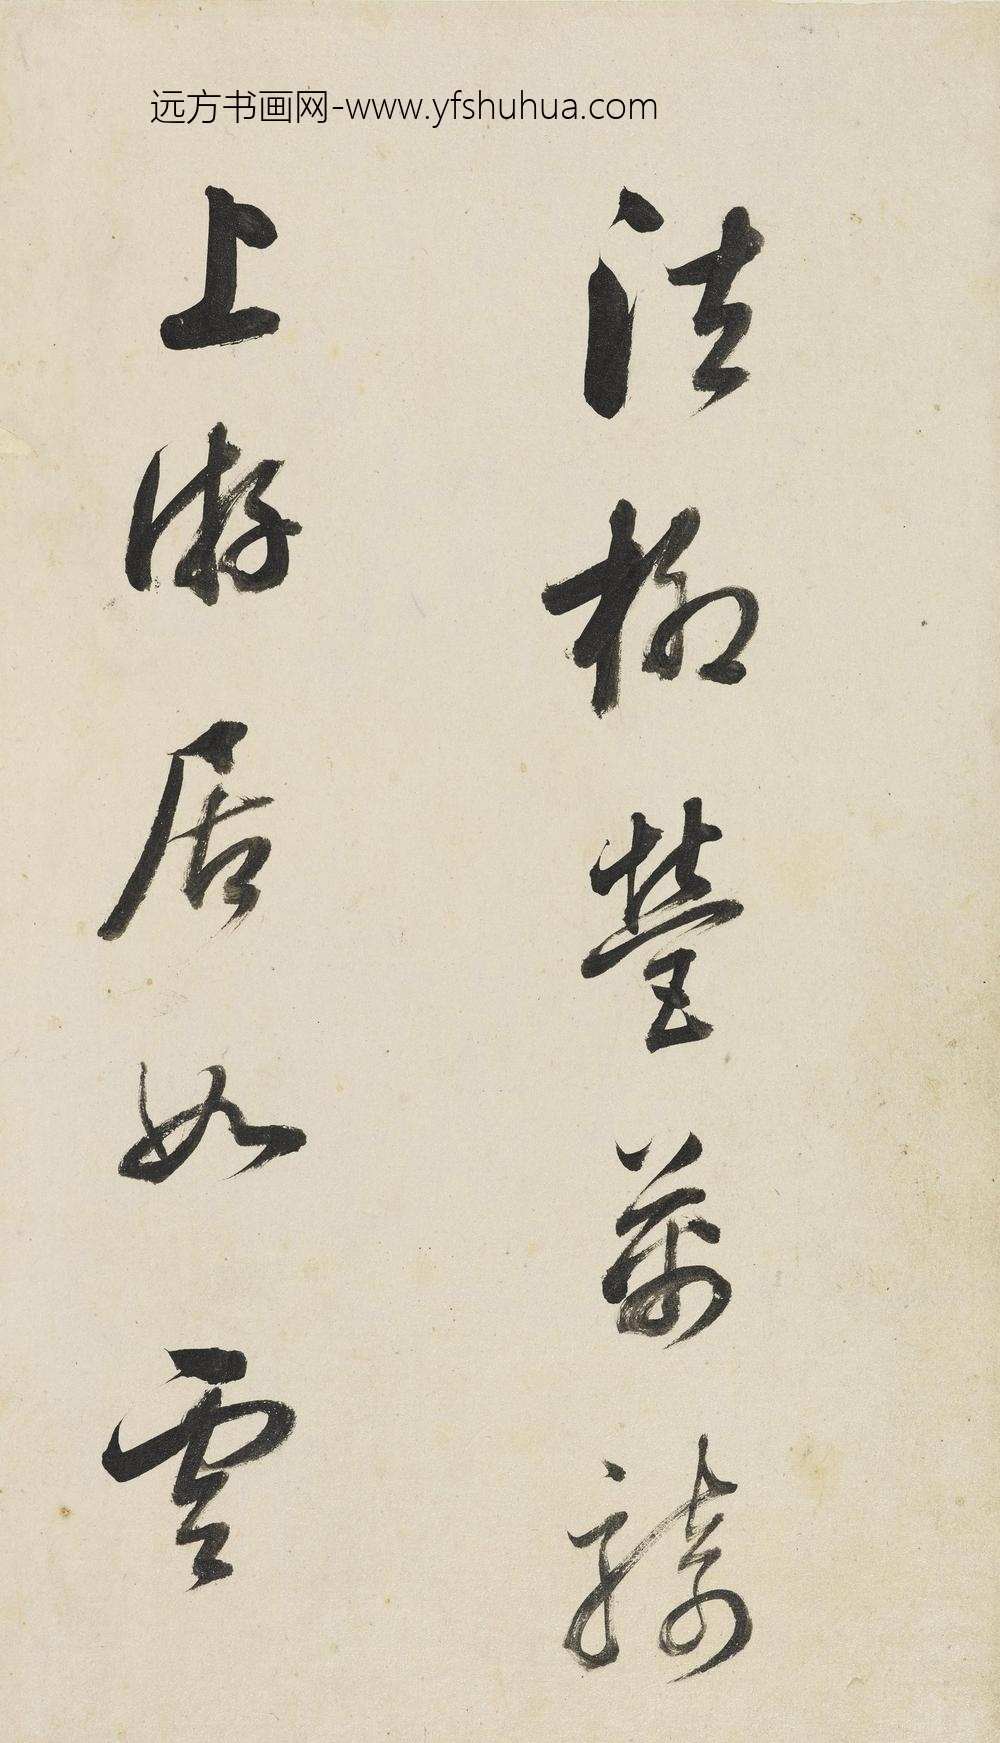 远方书画网-www.yfshuhua.com
法柳营万骑
上游居如云